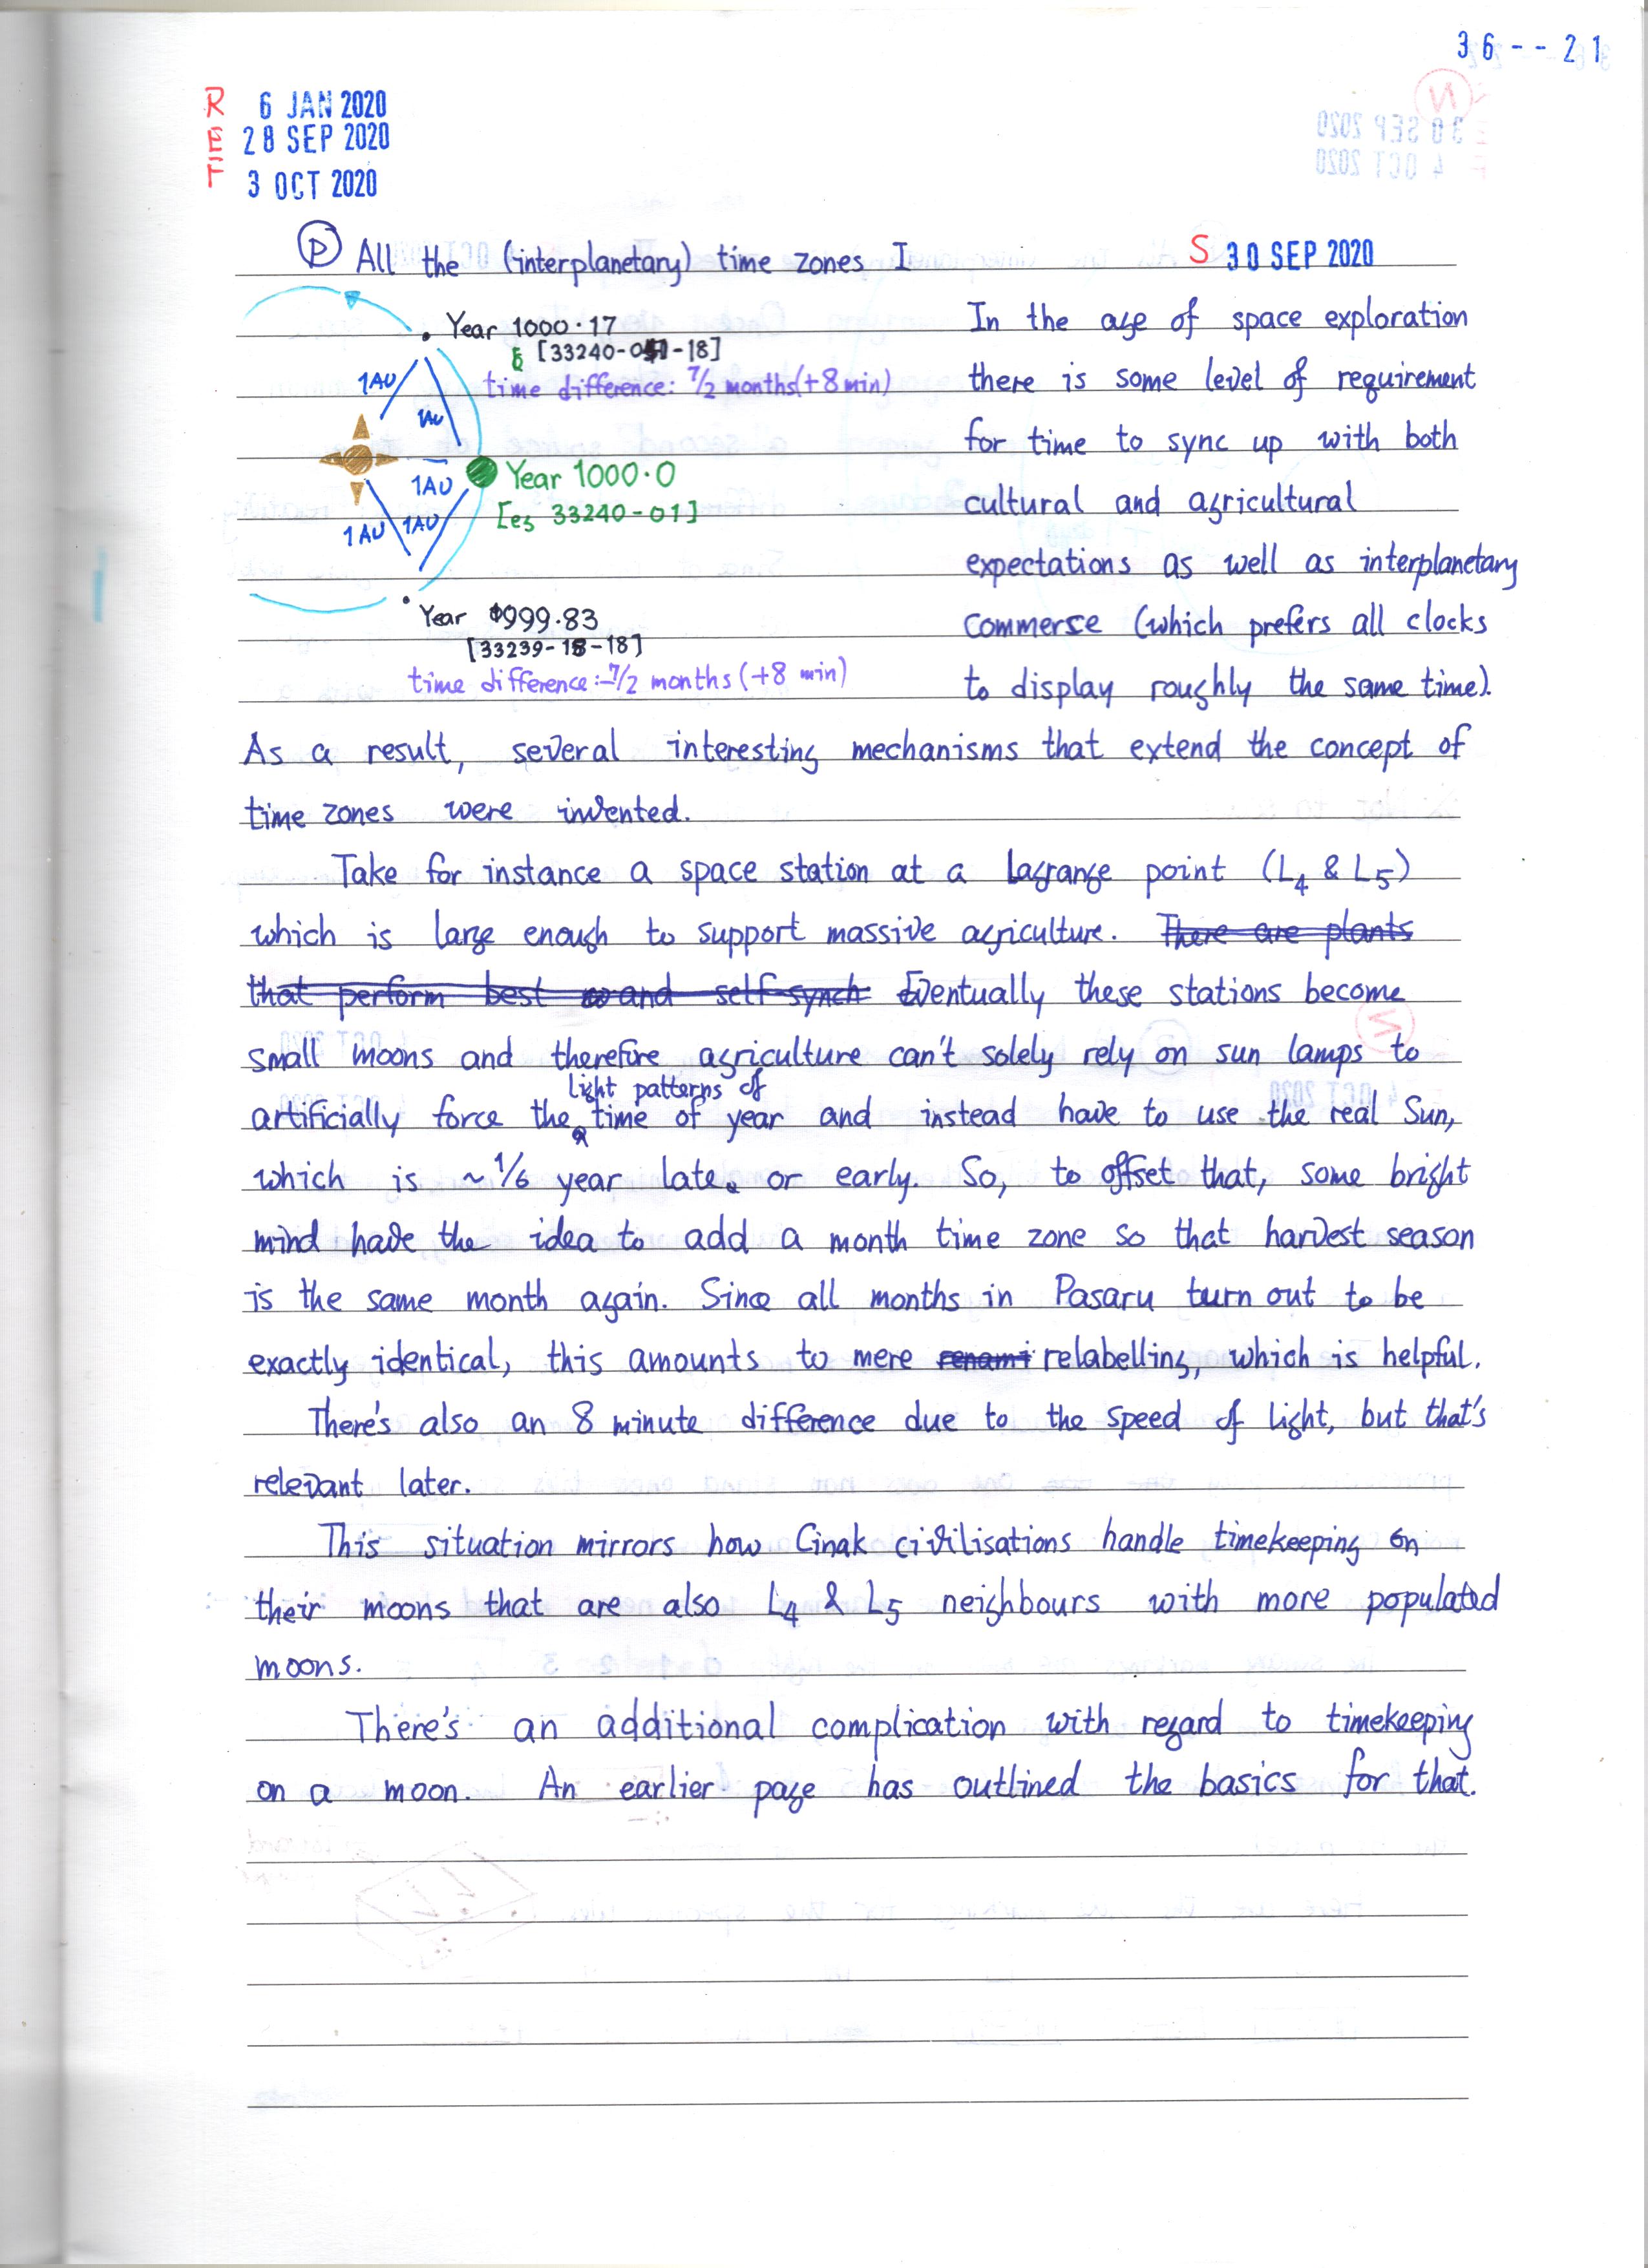 36--21
R 6 JAN 2020
E 28 SEP 2020
F 3 OCT 2020
P All the (interplanetary) time zones I
S 30 SEP 2020
Year 1000.17
[33240-04-18]
time difference: 7/2 months (+8 min)
1AU
1AU
1AU
Year 1000.0
[es 33240-01]
1AU
1AU
Year 999.83
[33239-15-18]
time difference: -7/2 months (+8 min)
In the age of space exploration
there is some level of requirement
for time to sync up with both
cultural and agricultural
expectations as well as interplanetary
commerse (which prefers all clocks
to display roughly the same time).
As a result, several interesting mechanisms that extend the concept of
time zones were invented.
Take for instance a space station at a Lagrange point (L4 & L5)
which is large enough to support massive agriculture. There are plants
that perform best and self-synch Eventually these stations become
small moons and therefore agriculture can't solely rely on sun lamps to
light patterns of
artificially force the time of year and instead have to use the real Sun,
which is ~1/6 year late or early. So, to offset that, some bright
mind have the idea to add a month time zone so that harvest season
is the same month again. Since all months in Pasaru turn out to be
exactly identical, this amounts to mere renami relabelling, which is helpful.
There's also an 8 minute difference due to the speed of light, but that's
relevant later.
This situation mirrors how Cinak civilisations handle timekeeping on
their moons that are also L4 & L5 neighbours with more populated
moons.
There's an additional complication with regard to timekeeping
on a moon. An earlier page has outlined the basics for that.